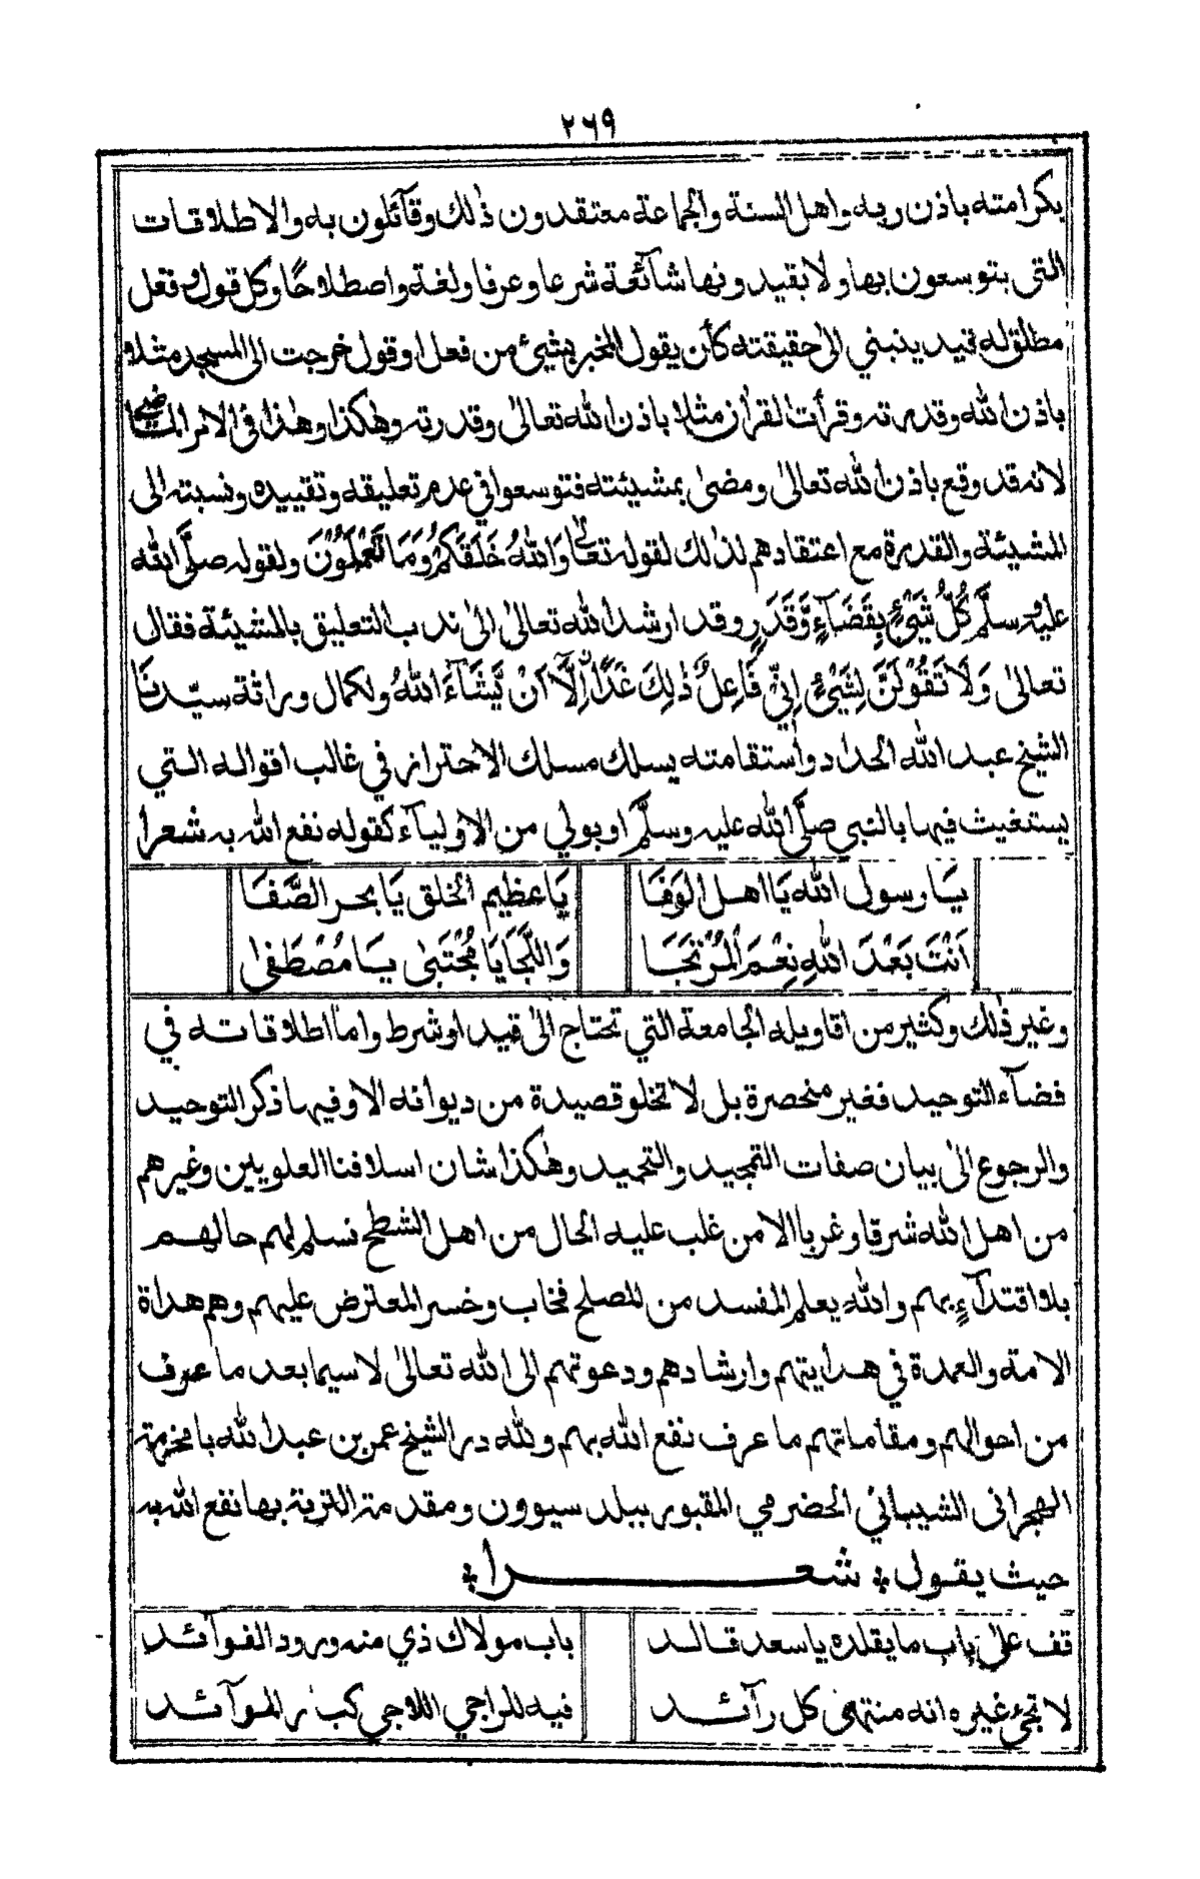 ٢٦٩
بكرامته باذن ربه واهل السنة والجماعة معتقدون ذٰلك وقآئلون به والاطلاقات
التي يتوسعون بها ولا يقيدونها شآئعة شرعا وعرفا ولغة واصطلاحًا وكل قول وفعل
مطلق له قيد ينبني الىٰ حقيقته كأن يقول المخبر بشيئ من فعل او قول خرجت الى المسجد مثلا
باذن الله وقدرته وقرأت القرآن مثلا باذن الله تعالىٰ وقدرته وهٰكذا وهٰذا في الامر الماضي
لانه قد وقع باذن الله تعالىٰ ومضىٰ بمشيئته فتوسعوا في عدم تعليقه وتقييده ونسبته الى
المشيئة والقدرة مع اعتقادهم لذٰلك لقوله تعالىٰ وَاللهُ خَلَقَكُمْ وَمَا تَعْمَلُوْنَ ولقوله صلَّى الله
عليه وسلَّم كُلُّ شَيْئٍ بِقَضَآءٍ وَّقَدَرٍ وقد ارشد الله تعالىٰ الىٰ ندب التعليق بالمشيئة فقال
تعالىٰ وَلَا تَقُوْلَنَّ لِشَيْئٍ اِنِّيْ فَاعِلٌ ذٰلِكَ غَدًا اِلَّآ اَنْ يَّشَآءَ اللهُ ولكمال وراثة سيّدنَا
الشيخ عبد الله الحداد واستقامته يسلك مسلك الاحتراز في غالب اقواله التي
يستغيث فيها بالنبي صلَّى الله عليه وسلَّم او بولي من الاوليآء كقوله نفع الله به شعرا
يَا رسول الله يَا اهل الوَفَا يَا عظيم الخلق يَا بحر الصَّفَا
اَنْتَ بَعْدَ اللهِ نِعْمَ الْمُرْتَجَا وَاللَّجَا يَا مُجْتَبىٰ يَا مُصْطَفىٰ
وغير ذٰلك وكثير من اقاويله الجامعة التي تحتاج الىٰ قيد او شرط واما اطلاقاته في
فضآء التوحيد فغير منحصرة بل لا تخلو قصيدة من ديوانه الا وفيها ذكر التوحيد
والرجوع الىٰ بيان صفات التمجيد والتحميد وهٰكذا شان اسلافنا العلويين وغيرهم
من اهل الله شرقا وغربا الا من غلب عليه الحال من اهل الشطح نسلم لهم حالهم
بلا اقتدآءٍ بهم والله يعلم المفسد من المصلح فخاب وخسر المعترض عليهم وهم هداة
الامة والعمدة في هدايتهم وارشادهم ودعوتهم الى الله تعالىٰ لا سيما بعد ما عرف
من احوالهم ومقاماتهم ما عرف نفع الله بهم ولله در الشيخ عمر بن عبد الله بامخرمة
الهجراني الشيباني الحضرمي المقبور ببلد سيوون ومقدمة التربة بها نفع الله به
حيث يقول ؞ شعـــــرا ؞
قف علىٰ باب ما يقلده يا سعد قالد باب مولاك ذي منه ورود الفوآئد
لا تجئ غيره انه منتهىٰ كل رآئد فيه للراجي اللاجي كبار الموآئد